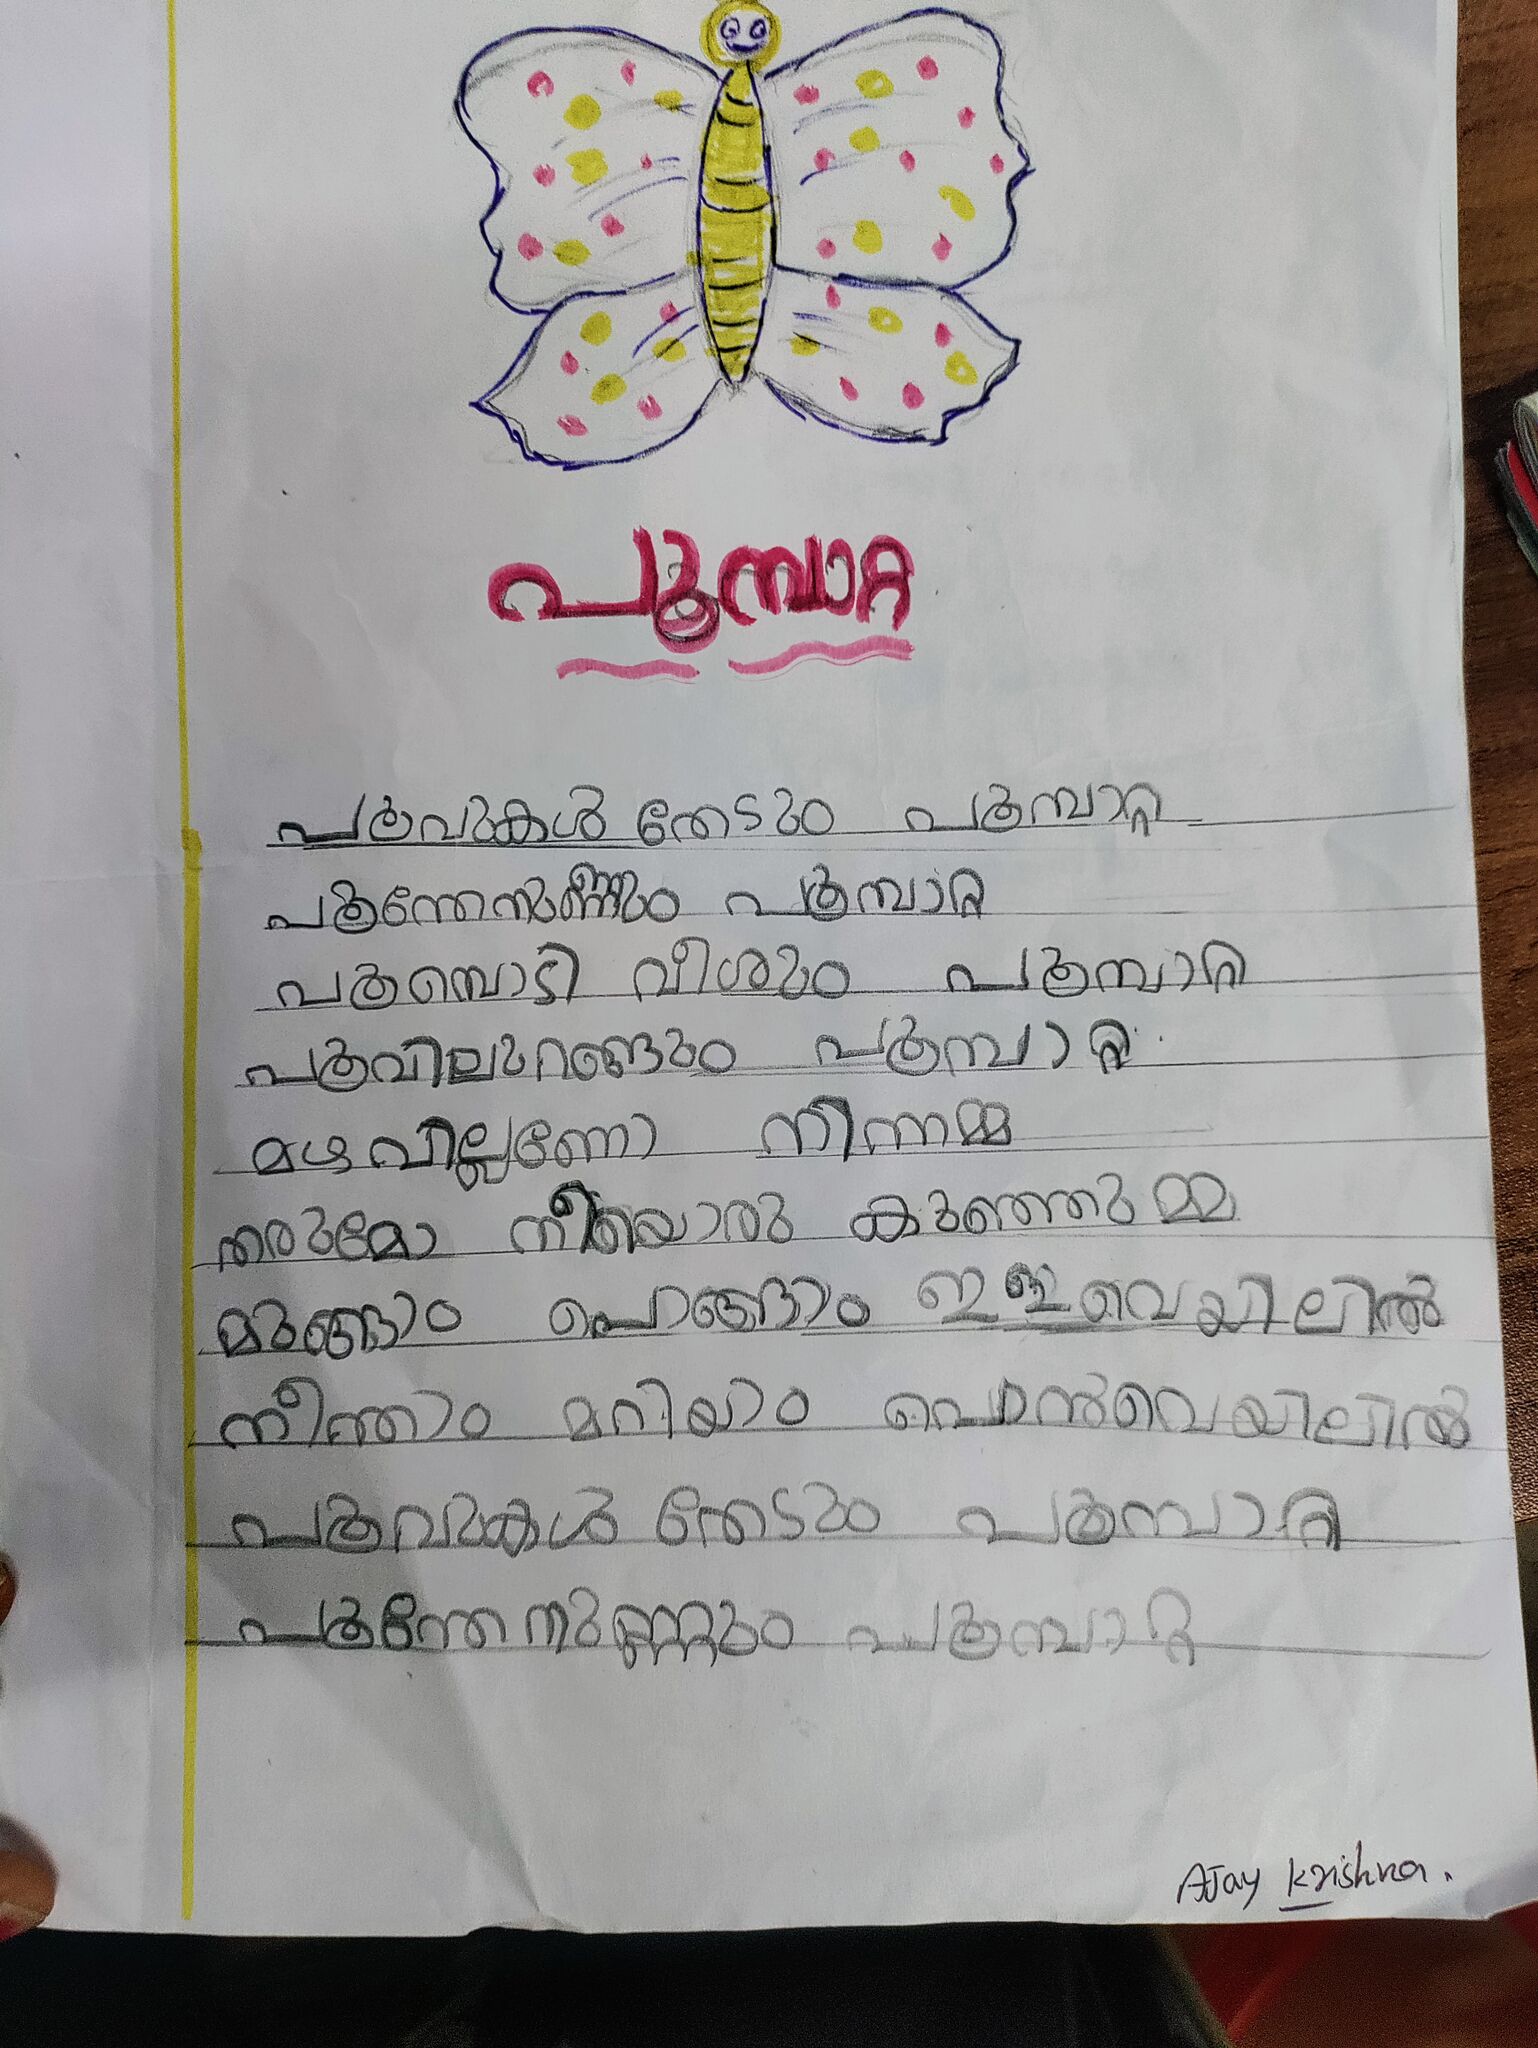 പൂമ്പാറ്റ
പൂവുകൾ തേടും പൂമ്പാറ്റ
പൂന്തേനുണ്ണും പൂമ്പാറ്റ
പൂമ്പൊടി വീശും പൂമ്പാറ്റ
പൂവിലുറങ്ങും പൂമ്പാറ്റ
മഴവില്ലാണോ നിന്നമ്മ
തരുമോ നീയൊരു കുഞ്ഞുമ്മ
മുങ്ങാം പൊങ്ങാം ഇളവെയിലിൽ
നീന്താം മറിയാം പൊൻവെയിലിൽ
പൂവുകൾ തേടും പൂമ്പാറ്റ
പൂന്തേനുണ്ണും പൂമ്പാറ്റ
AJay Krishna.